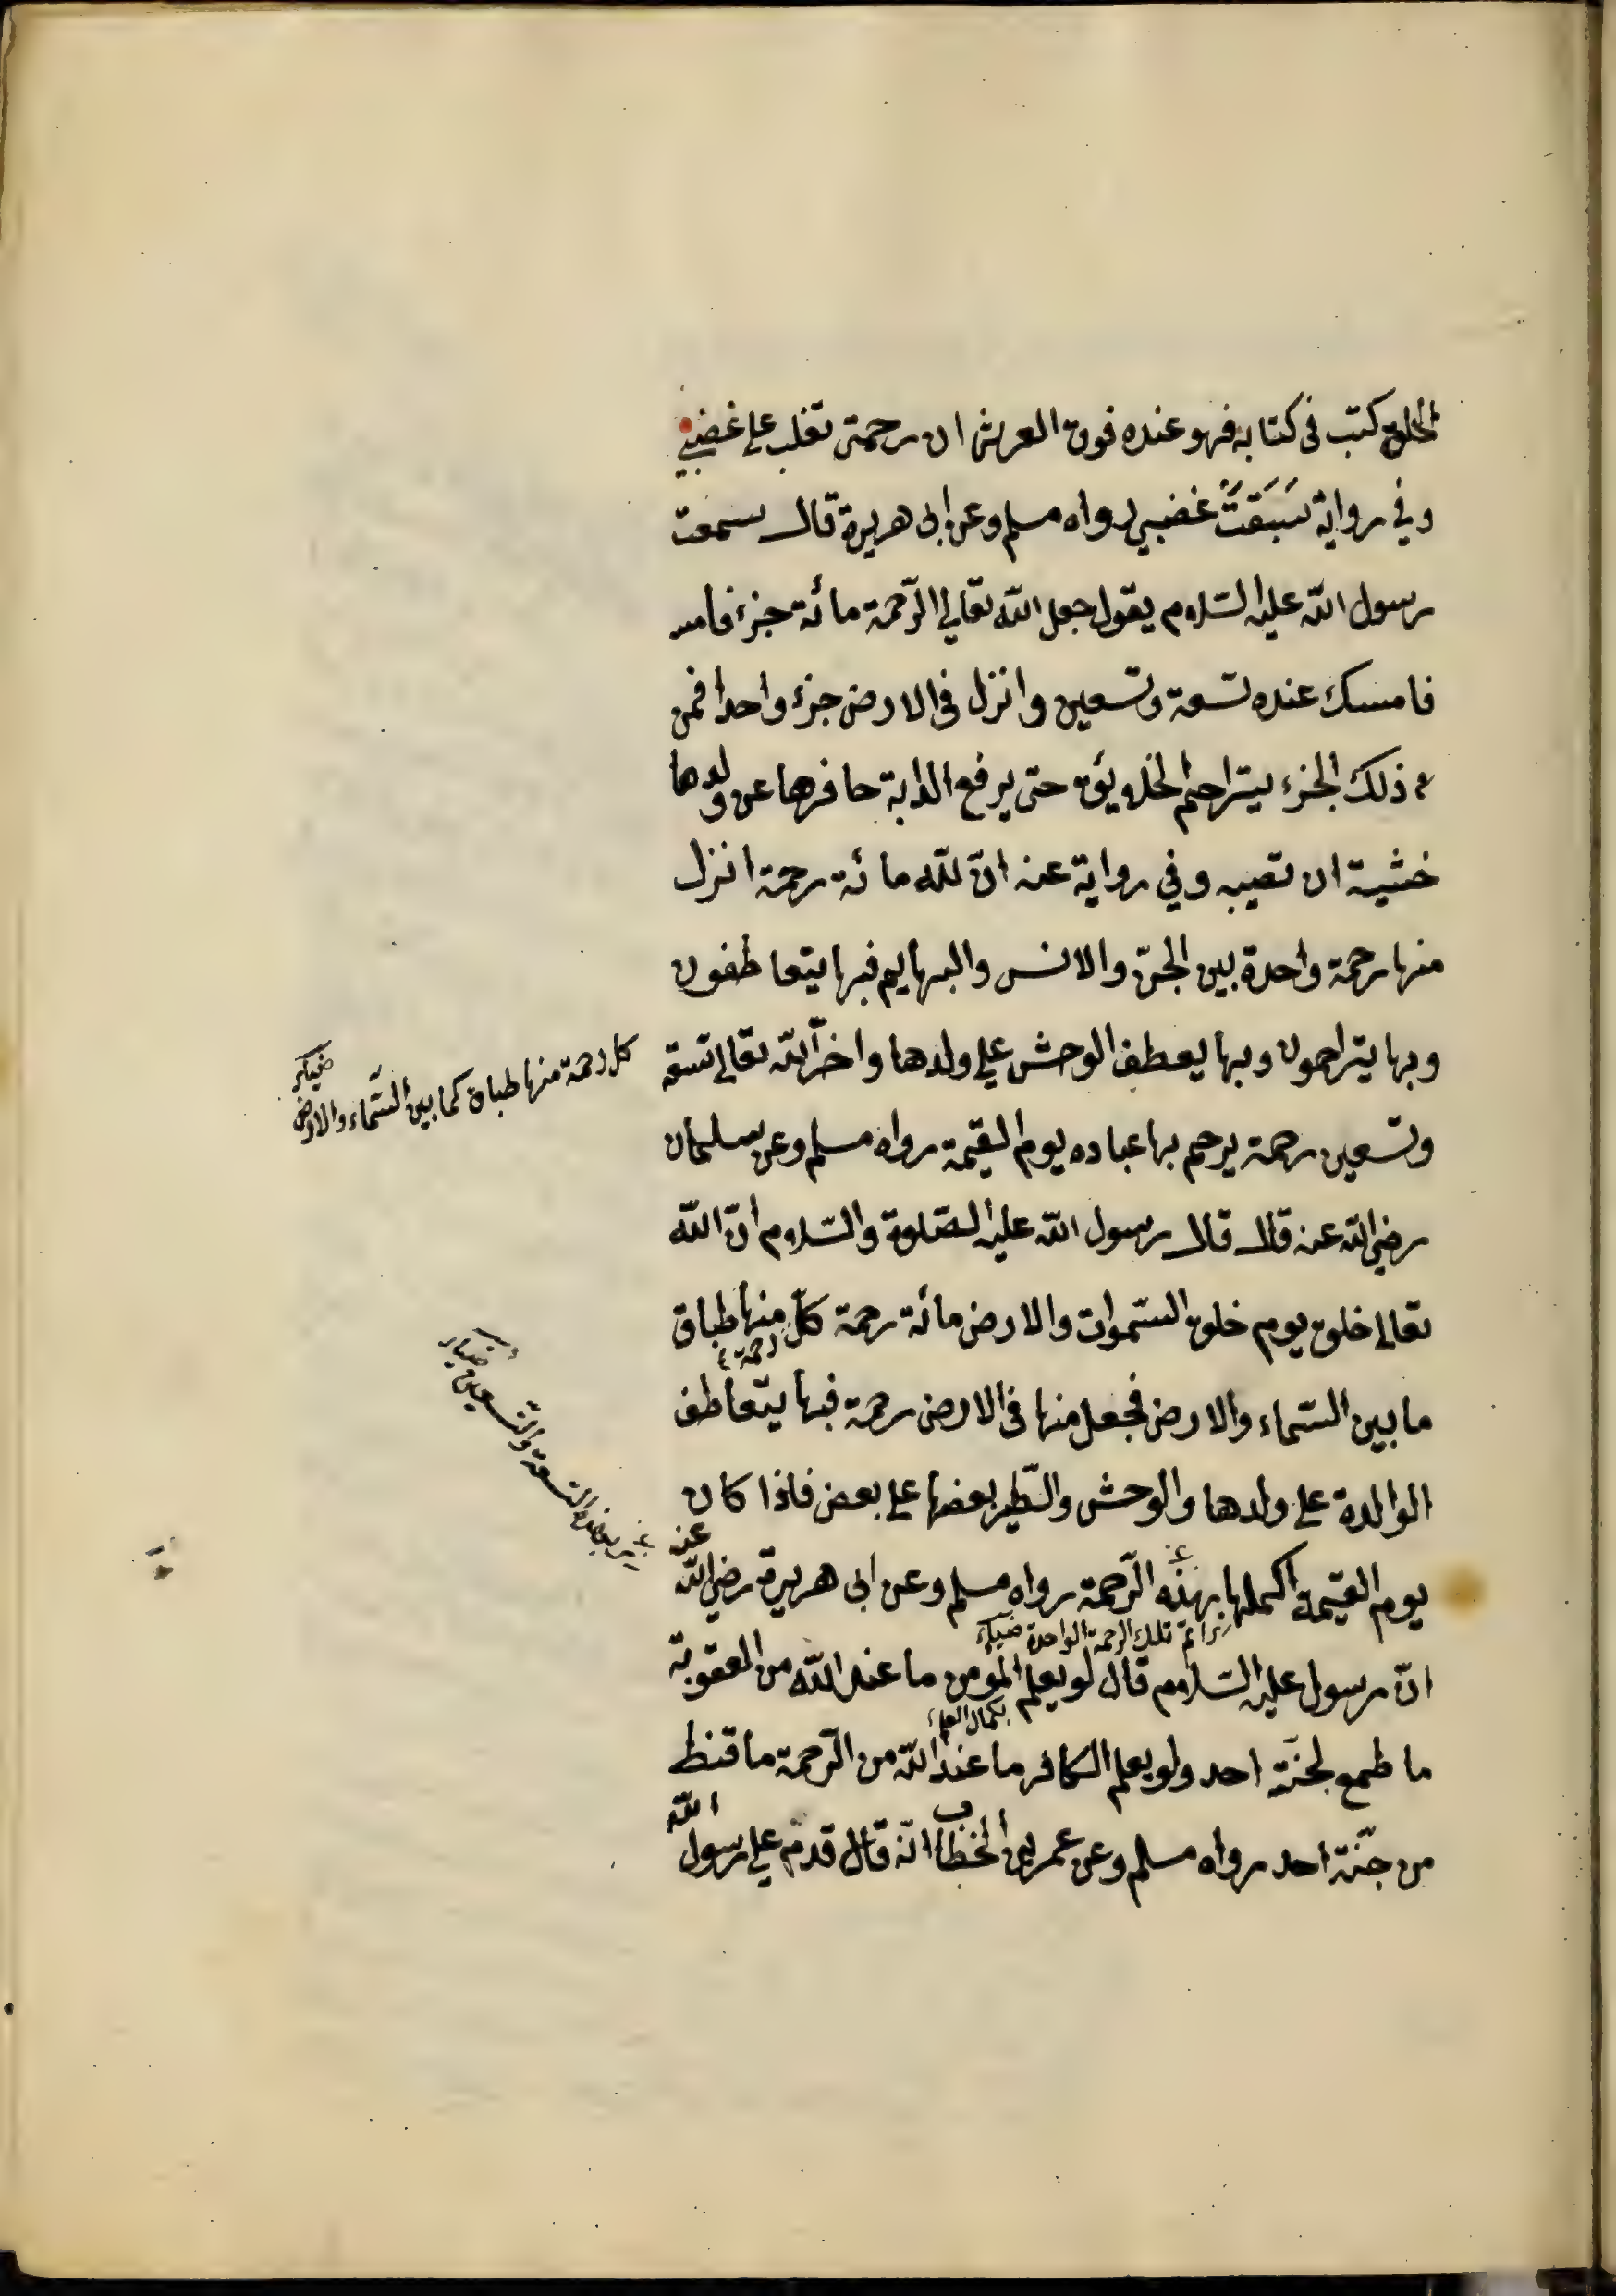 الخلق كتب في كتابه فهو عنده فوق العرش ان رحمتي تغلب على غضبي
وفي رواية سَبَقَتْ غضبي رواه مسلم وعن ابى هريرة قال سمعت
رسول الله عليه السّلام يقول جعل الله تعالى الرّحمة مائة جزء فامسـ
فامسك عنده تسعة وتسعين وانزل في الارض جزء واحدا فمن
ذلك الجزء يتراحم الخلايق حتى يرفع الدابة حافرها عن ولدها
خشية ان تصيبه وفي رواية عنه انّ لله مائة رحمة انزل
منها رحمة واحدة بين الجنّ والانس والبهايم فبها يتعاطفون
وبها يتراحمون وبها يعطف الوحش على ولدها واخّر الله تعالى تسعة
كل رحمة منها طباق كما بين السّماء والارض
وتسعين رحمة يرحم بها عباده يوم القيمة رواه مسلم وعن سلمان
رضي الله عنه قال قال رسول الله عليه الصّلوة والسّلام انّ الله
تعالى خلق يوم خلق السّموات والارض مائة رحمة كلّ منها طباق
رحمة
ما بين السّماء والارض فجعل منها في الارض رحمة فبها يتعاطف
الوالدة على ولدها والوحش والطّير بعضها على بعض فاذا كان
التسعة والتّسعين
عنه
يوم القيمة اكملها بهذه الرّحمة رواه مسلم وعن ابى هريرة رضي الله
تلك الرحمة الواحدة
انّ رسول عليه السّلام قال لو يعلم المؤمن ما عند الله من العقوبة
ما طمع لجنّة احد ولو يعلم الكافر ما عند الله من الرّحمة ما قنط
الله
من جنّة احد رواه مسلم وعن عمر بن الخطاب انّه قال قدم على رسول